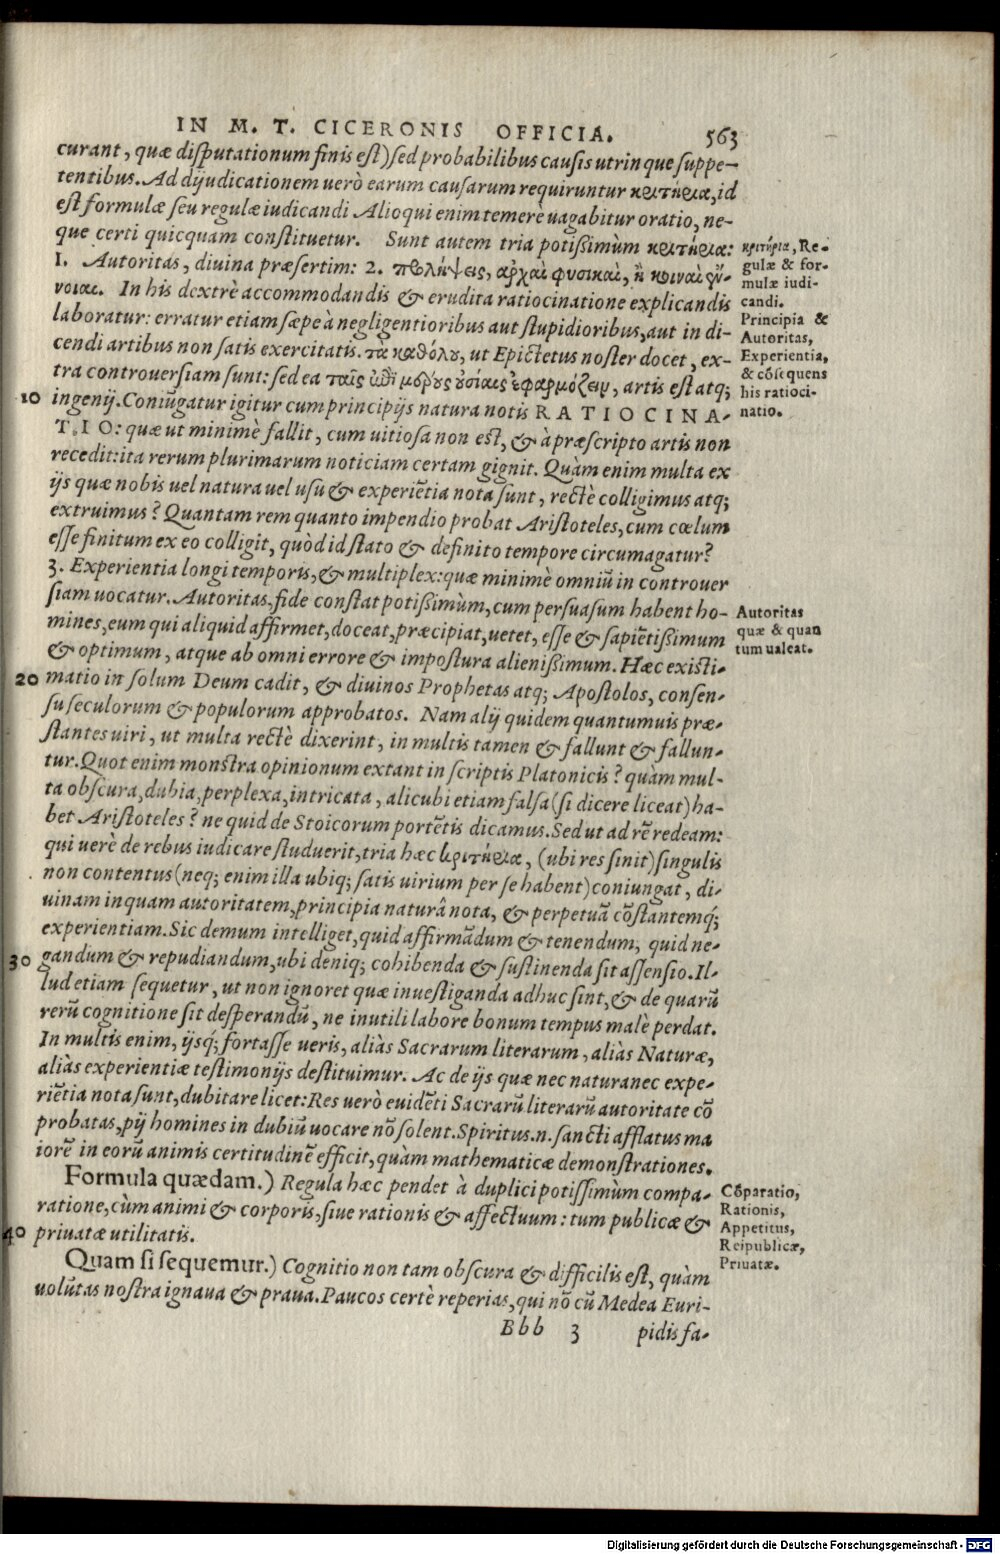 IN M. T. CICERONIS OFFICIA. 563
curant, quæ disputationum finis est) sed probabilibus causis utrinque suppe-
tentibus. Ad dijudicationem uerò earum causarum requiruntur κριτήρια, id
est formulæ seu regulæ iudicandi Alioqui enim temerè uagabitur oratio, ne-
que certi quicquam constituetur. Sunt autem tria potißimùm κριτήρια:
1. Autoritas, diuina præsertim: 2. πρλήψεις, ἀρχαὶ φυσικαὶ, ἢ κοιναὶ ἔν-
νοιαι. In his dextrè accommodandis & erudita ratiocinatione explicandis
laboratur: erratur etiam sæpe à negligentioribus aut stupidioribus, aut in di-
cendi artibus non satis exercitatis. τὰ καθόλου, ut Epictetus noster docet, ex-
tra controuersiam sunt: sed ea ταῖς ἐπὶ μέρους οὐσίαις ἐφαρμόζειν, artis est atq;
10 ingenij. Coniũgatur igitur cum principijs natura notis RATIOCINA-
TIO: quæ ut minimè fallit, cum uitiosa non est, & à præscripto artis non
recedit: ita rerum plurimarum noticiam certam gignit. Quàm enim multa ex
ijs quæ nobis uel natura uel usu & experiẽtia nota sunt, rectè colligimus atq;
extruimus? Quantam rem quanto impendio probat Aristoteles, cum cœlum
esse finitum ex eo colligit, quòd id stato & definito tempore circumagatur?
3. Experientia longi temporis, & multiplex: quæ minimè omniũ in controuer
siam uocatur. Autoritas, fide constat potißimùm, cum persuasum habent ho-
mines, eum qui aliquid affirmet, doceat, præcipiat, uetet, esse & sapiẽtißimum
& optimum, atque ab omni errore & impostura alienißimum. Hæc existi-
20 matio in solum Deum cadit, & diuinos Prophetas atq; Apostolos, consen-
su seculorum & populorum approbatos. Nam alij quidem quantumuis præ-
stantes uiri, ut multa rectè dixerint, in multis tamen & fallunt & fallun-
tur. Quot enim monstra opinionum extant in scriptis Platonicis? quàm mul-
ta obscura, dubia, perplexa, intricata, alicubi etiam falsa (si dicere liceat) ha-
bet Aristoteles? ne quid de Stoicorum portẽtis dicamus. Sed ut ad rẽ redeam:
qui uerè de rebus iudicare studuerit, tria hæc κριτήρια, (ubi res sinit) singulis
non contentus (neq; enim illa ubiq; satis uirium per se habent) coniungat, di-
uinam inquam autoritatem, principia naturâ nota, & perpetuã cõstantemq́;
experientiam. Sic demum intelliget, quid affirmãdum & tenendum, quid ne-
30 gandum & repudiandum, ubi deniq; cohibenda & sustinenda sit assensio. Il-
lud etiam sequetur, ut non ignoret quæ inuestiganda adhuc sint, & de quarũ
rerũ cognitione sit desperandũ, ne inutili labore bonum tempus malè perdat.
In multis enim, ijsq́; fortasse ueris, aliàs Sacrarum literarum, aliàs Naturæ,
aliàs experientiæ testimonijs destituimur. Ac de ijs quæ nec natura nec expe-
riẽtia nota sunt, dubitare licet: Res uerò euidẽti Sacrarũ literarũ autoritate cõ
probatas, pij homines in dubiũ uocare nõ solent. Spiritus .n. sancti afflatus ma
iorẽ in eorũ animis certitudinẽ efficit, quàm mathematicæ demonstrationes.
Formula quædam.) Regula hæc pendet à duplici potissimùm compa-
ratione, cùm animi & corporis, siue rationis & affectuum: tum publicæ &
40 priuatæ utilitatis.
Quam si sequemur.) Cognitio non tam obscura & difficilis est, quàm
uolũtas nostra ignaua & praua. Paucos certè reperias, qui nõ cũ Medea Euri-
Bbb 3 pidis fa-
κριτήρια, Re-
gulæ & for-
mulæ iudi-
candi.
Principia &
Autoritas,
Experientia,
& cõsequens
his ratioci-
natio.
Autoritas
quæ & quan
tum ualeat.
Cõparatio,
Rationis,
Appetitus,
Reipublicæ,
Priuatæ.
Digitalisierung gefördert durch die Deutsche Forschungsgemeinschaft - DFG